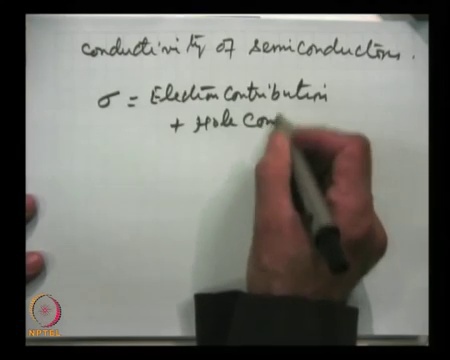 conductivity of semiconductors.
σ = Election contribution
+ Hole Con
NPTEL